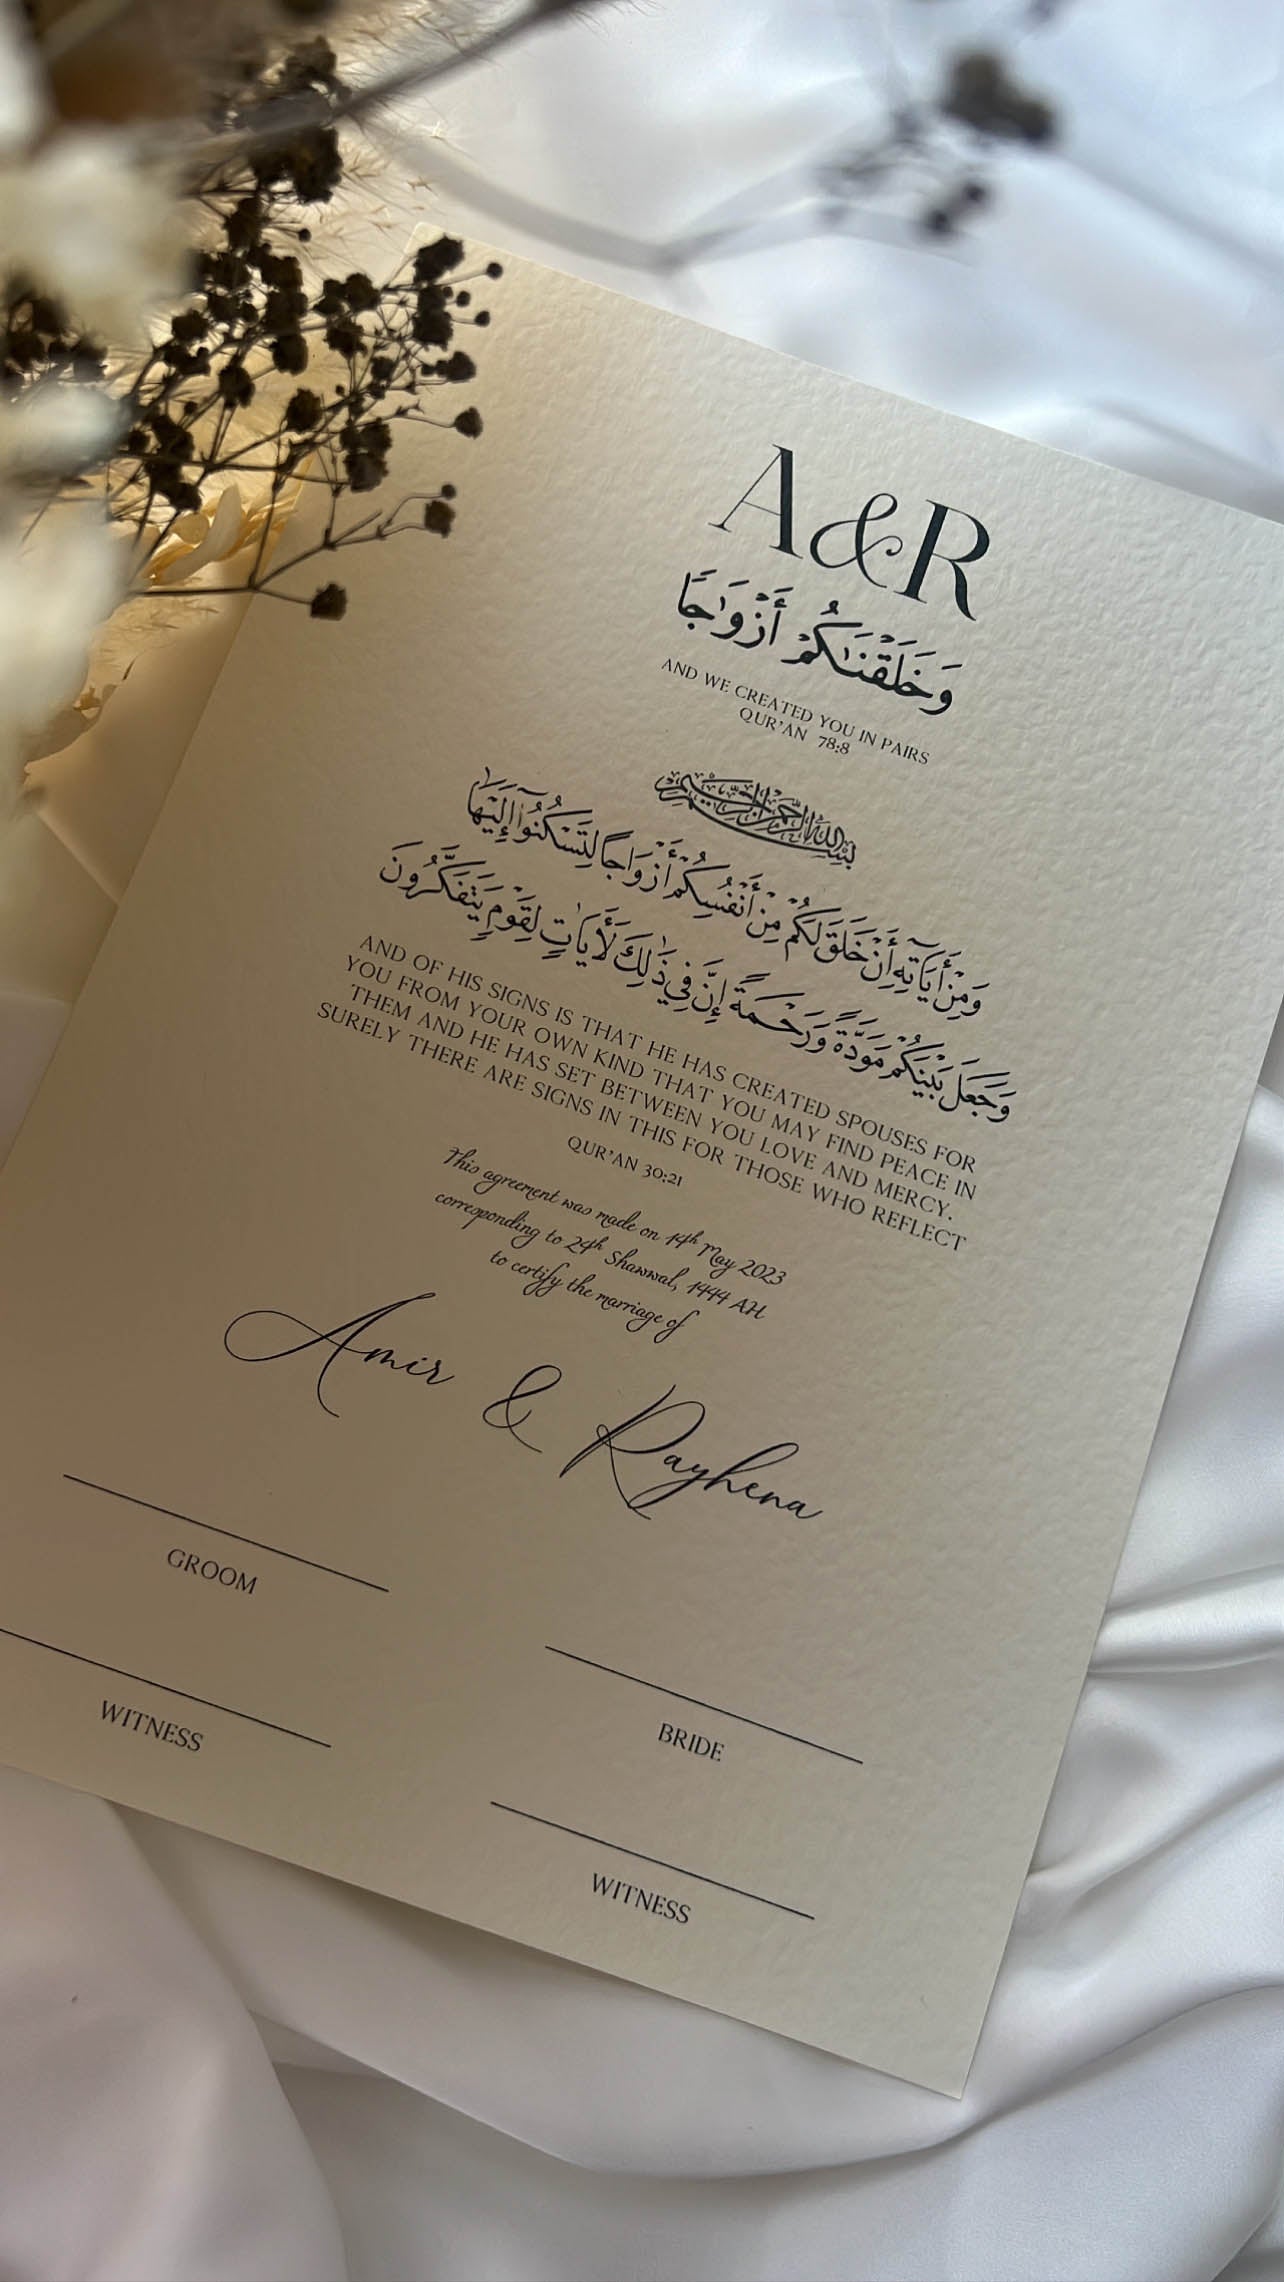 A&R
وَخَلَقْنَـٰكُمْ أَزْوَٰجًا
AND WE CREATED YOU IN PAIRS
QUR'AN 78:8
بِسْمِ اللهِ الرَّحْمٰنِ الرَّحِيْمِ
وَمِنْ أَيَاتِهِ أَنْ خَلَقَ لَكُم مِنْ أَنْفُسِكُمْ أَزْوَاجًا لِتَسْكُنُوا إِلَيْهَا
وَجَعَلَ بَيْنَكُمْ مَوَدَّةً وَرَحْمَةً إِنَّ فِي ذَٰلِكَ لَأَيَاتٍ لِقَوْمٍ يَتَفَكَّرُونَ
AND OF HIS SIGNS IS THAT HE HAS CREATED SPOUSES FOR
YOU FROM YOUR OWN KIND THAT YOU MAY FIND PEACE IN
THEM AND HE HAS SET BETWEEN YOU LOVE AND MERCY.
SURELY THERE ARE SIGNS IN THIS FOR THOSE WHO REFLECT
QUR'AN 30:21
This agreement was made on 14th May 2023
corresponding to 24th Shawwal, 1444 AH
to certify the marriage of
Amir & Rayhena
GROOM
BRIDE
WITNESS
WITNESS